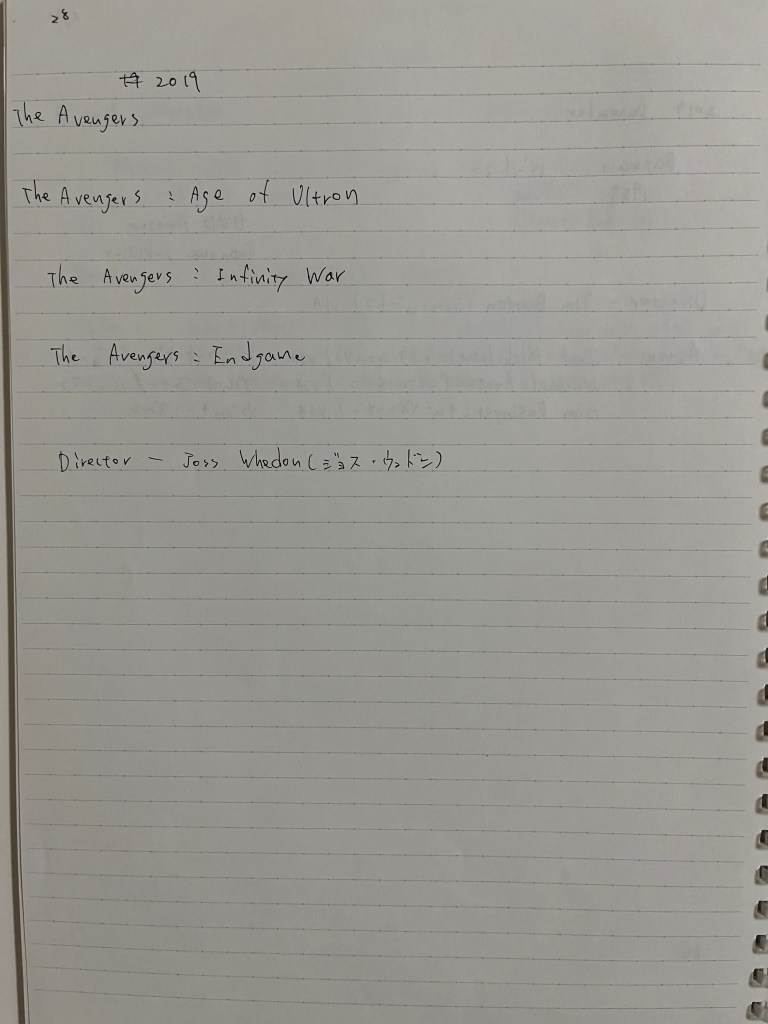 28
2019
The Avengers
The Avengers : Age of Ultron
The Avengers : Infinity War
The Avengers : Endgame
Director － Joss Whedon (ジョス・ウェドン)